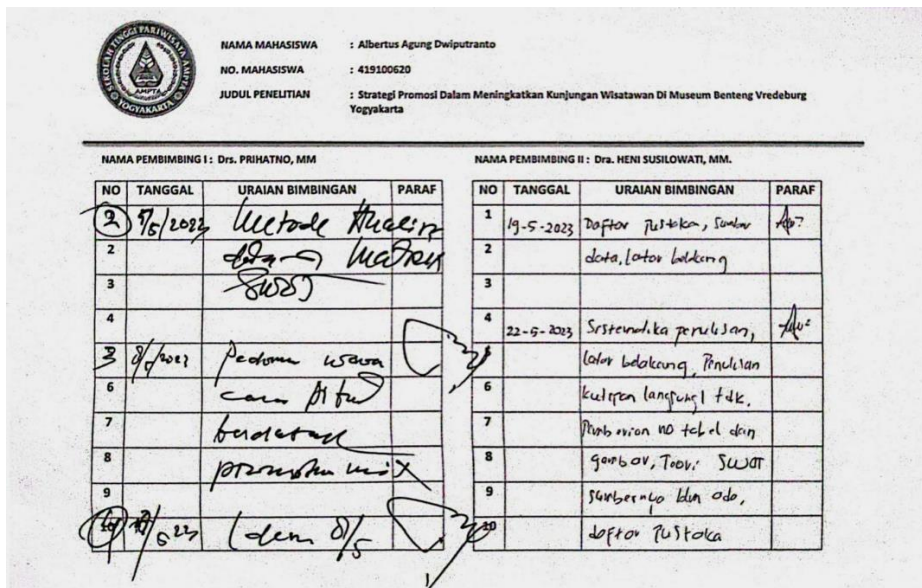 SEKOLAH TINGGI PARIWISATA AMPTA
AMPTA
YOGYAKARTA
NAMA MAHASISWA : Albertus Agung Dwiputranto
NO. MAHASISWA : 419100620
JUDUL PENELITIAN : Strategi Promosi Dalam Meningkatkan Kunjungan Wisatawan Di Museum Benteng Vredeburg
Yogyakarta
NAMA PEMBIMBING I : Drs. PRIHATNO, MM
NO TANGGAL URAIAN BIMBINGAN PARAF
2 /5/2023 Metode
2
3
4
3 8/5/2023 Pedoman
6
7
8 mix
9
Idem 8/5
NAMA PEMBIMBING II : Dra. HENI SUSILOWATI, MM.
NO TANGGAL URAIAN BIMBINGAN PARAF
1 19-5-2023 Daftar Pustaka, Sumber
2 data, latar belakang
3
4 22-5-2023 Sistematika penulisan,
latar belakang, Penulisan
6 kutipan langsung/ tdk,
7 Pemberian no tabel dan
8 gambar, Teori SWOT
9 sumbernya blm ada,
10 daftar Pustaka